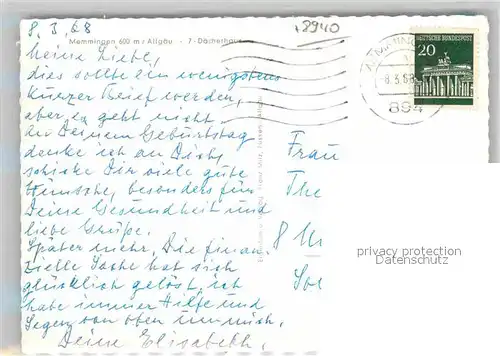 8.3.68
8940
Memmingen 600 m / Allgäu - 7-Dächerhaus
Meine Liebe,
dies sollte ein wenigstens
kurzer Brief werden,
aber es geht nicht.
An Deinem Geburtstag
denke ich an Dich,
schicke Dir viele gute
Wünsche, besonders für
Deine Gesundheit und
liebe Grüße.
Später mehr, Die finan-
zielle Sache hat sich
glücklich gelöst, ich
habe immer Hilfe und
Segen von oben um mich.
Deine Elisabeth.
DEUTSCHE BUNDESPOST
20
-8.3.68
894
Frau
The
8 M
privacy protection
Datenschutz